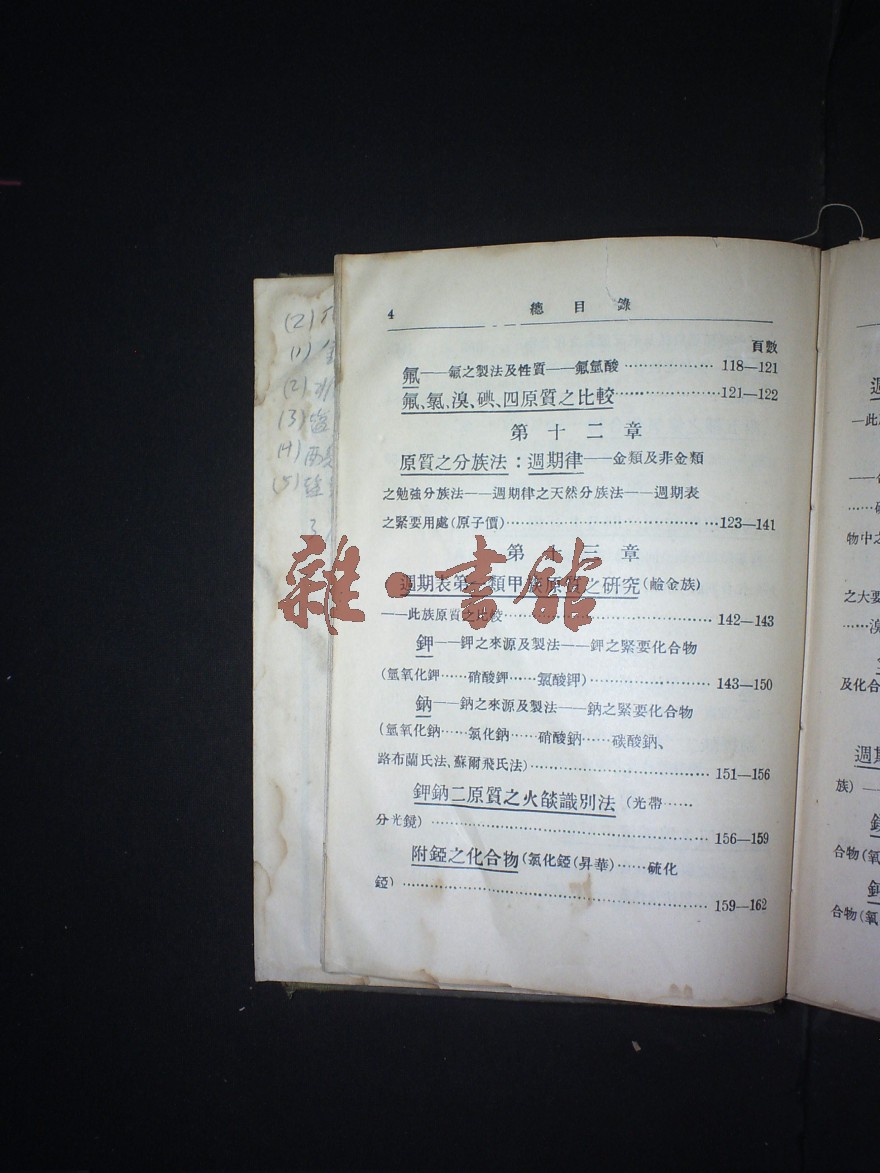 4 總目錄
頁數
氟——氟之製法及性質——氟氫酸………………118—121
氟、氯、溴、碘、四原質之比較………………121—122
第十二章
原質之分族法：週期律——金類及非金類
之勉強分族法——週期律之天然分族法——週期表
之緊要用處(原子價)………………123—141
第十三章
週期表第一類甲族原質之研究(鹼金族)
——此族原質之比較………………142—143
鉀——鉀之來源及製法——鉀之緊要化合物
(氫氧化鉀……硝酸鉀……氯酸鉀)………………143—150
鈉——鈉之來源及製法——鈉之緊要化合物
(氫氧化鈉……氯化鈉……硝酸鈉……碳酸鈉、
路布蘭氏法、蘇爾飛氏法)………………151—156
鉀鈉二原質之火燄識別法(光帶……
分光鏡)………………156—159
附錏之化合物(氯化錏(昇華)……硫化
錏)………………159—162
雜·書館
(2)
(1)
(2)
(3)
(4)
(5)
週
—此
物中之
之大要
……溴
及化合
週期
族)—
合物(氧
合物(氧